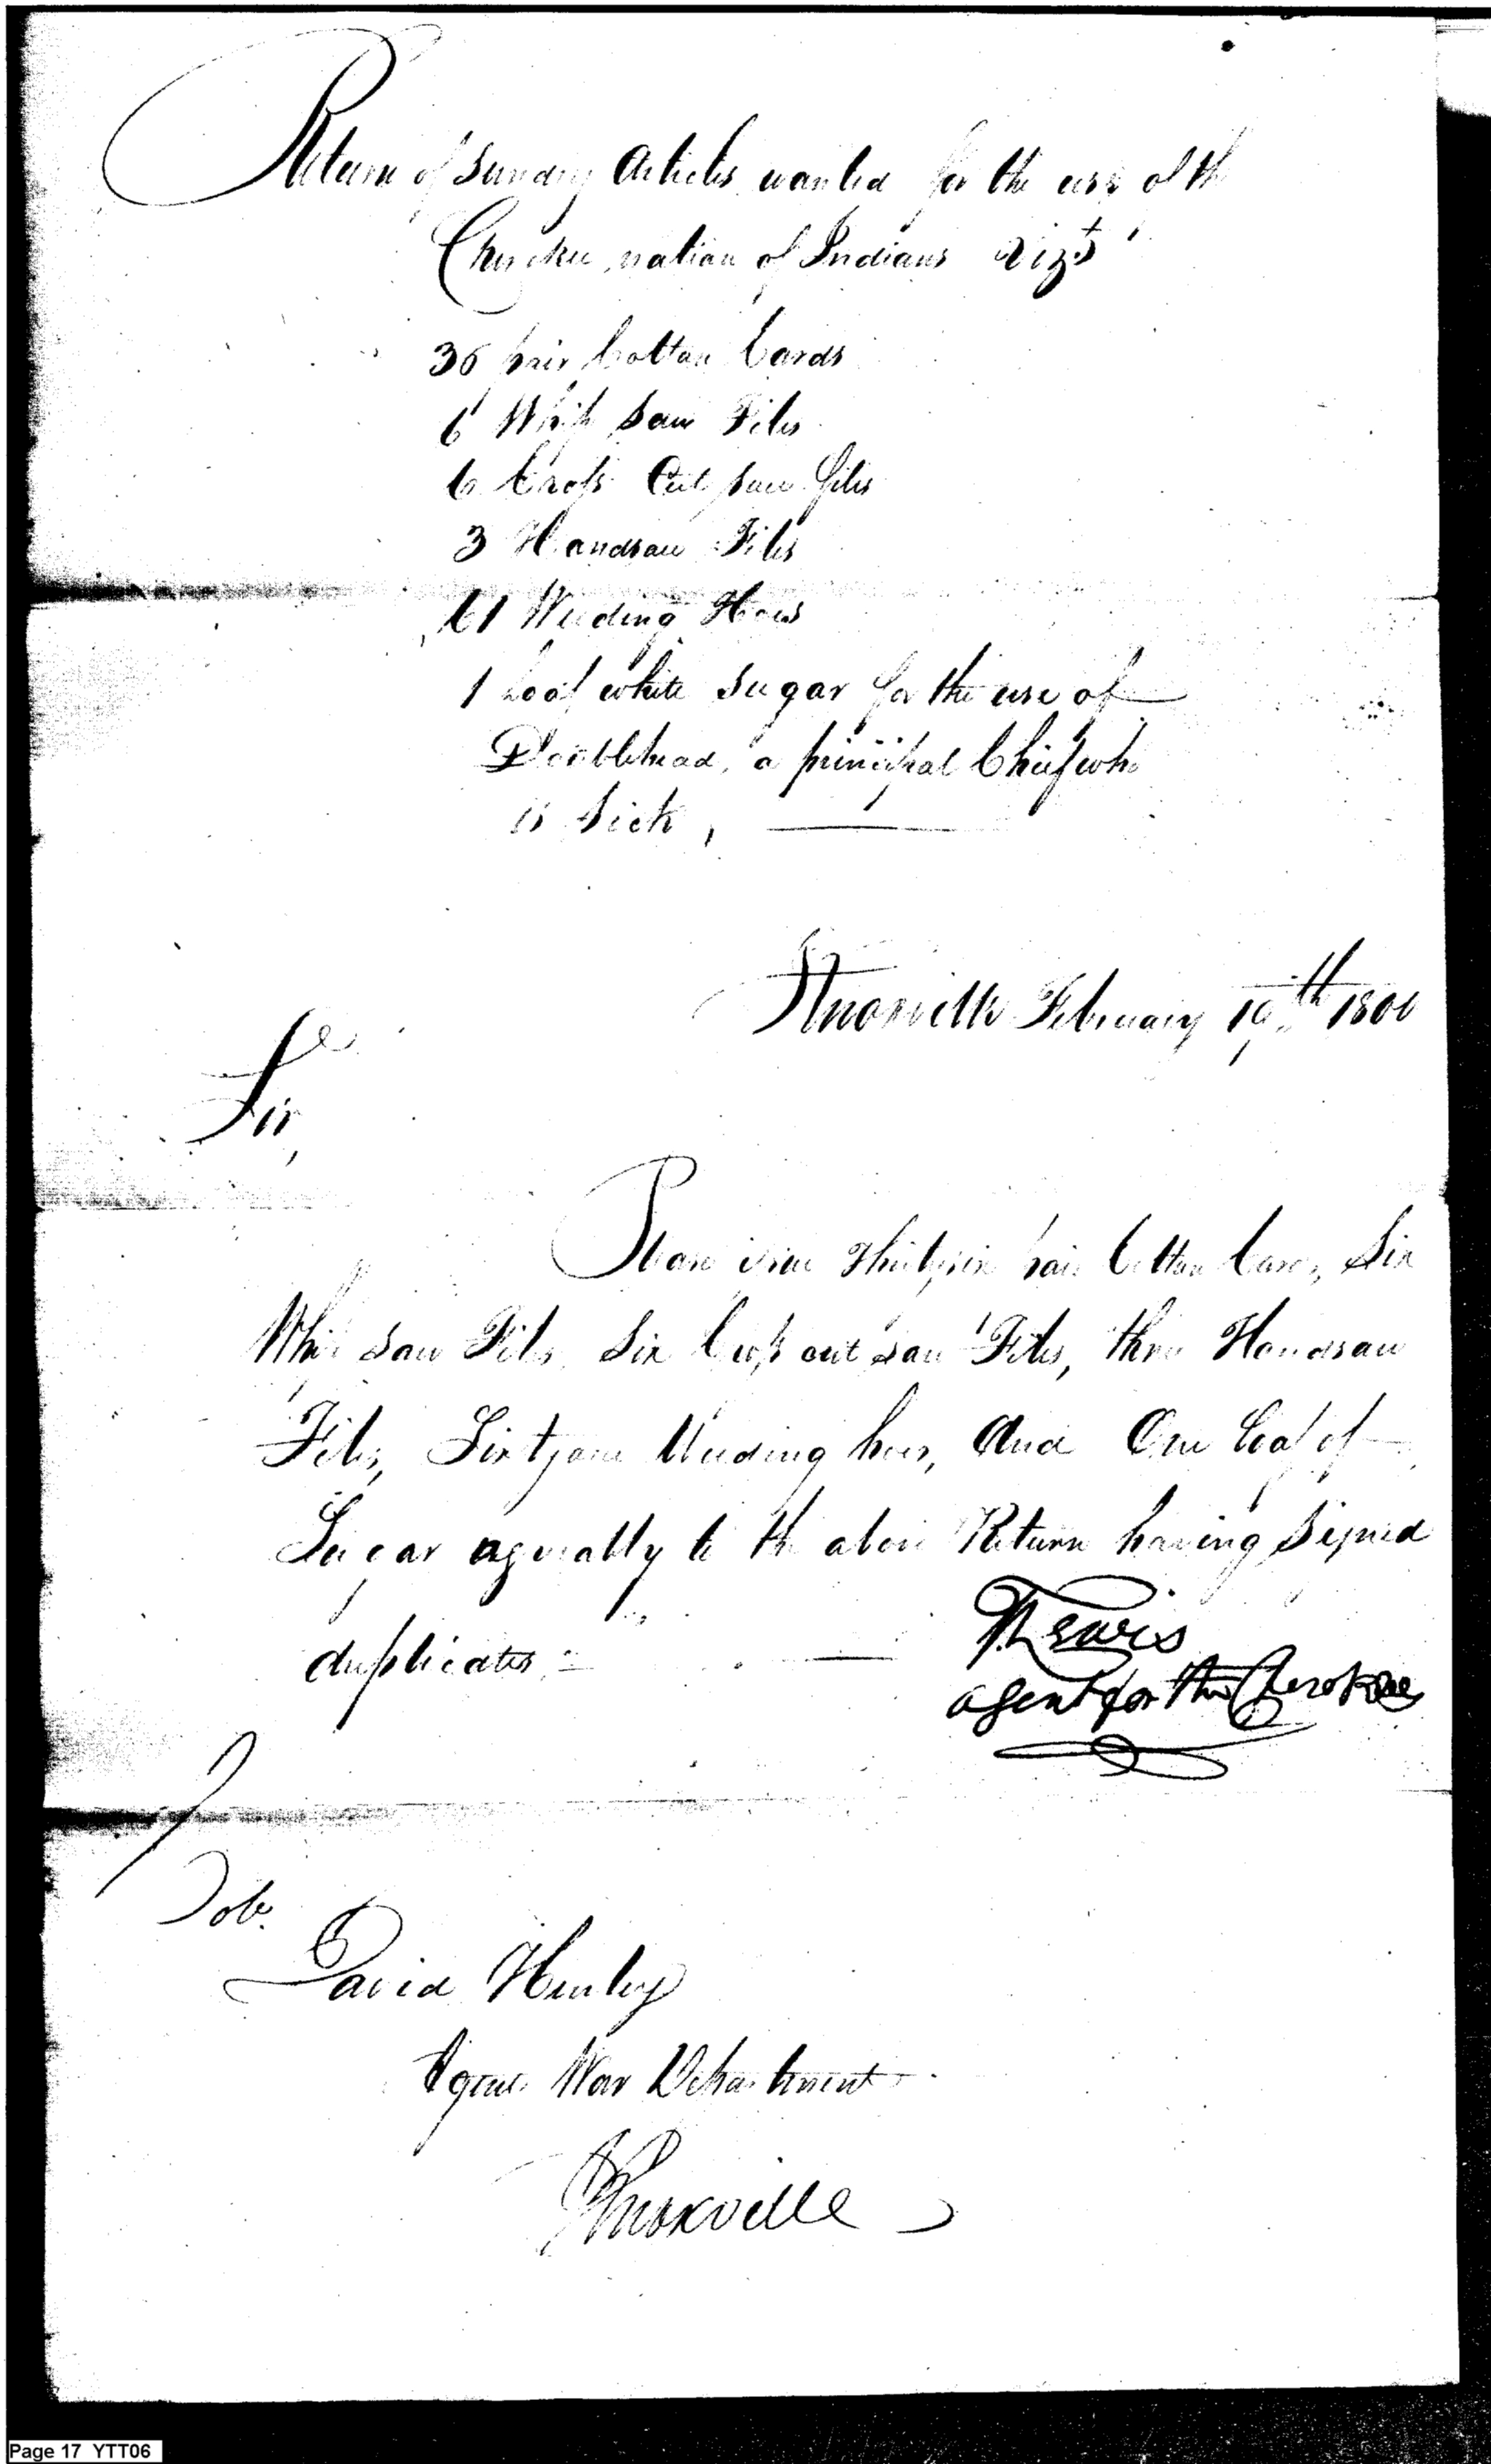 Return of Sundry Articles wanted for the use of the
Cherokee nation of Indians Vizt
36 pair Cotton Cards
6 Whip Saw Files
6 Cross Cut Saw files
3 Handsaw Files
61 Weeding Hoes
1 Loaf white Sugar for the use of
Doublehead, a principal Chief who
is Sick,
Knoxville February 19th 1800
Sir,
Please issue Thirtysix pair Cotton Cards, Six
Whip Saw Files Six Cross cut Saw Files, three Handsaw
Files, Sixtyone Weeding hoes, And One Loaf of
Sugar agreeably to the above Return having Signed
duplicates
Lewis
agent for the Cherokees
David Henley
Agent War Department
Knoxville
Page 17 YTT06